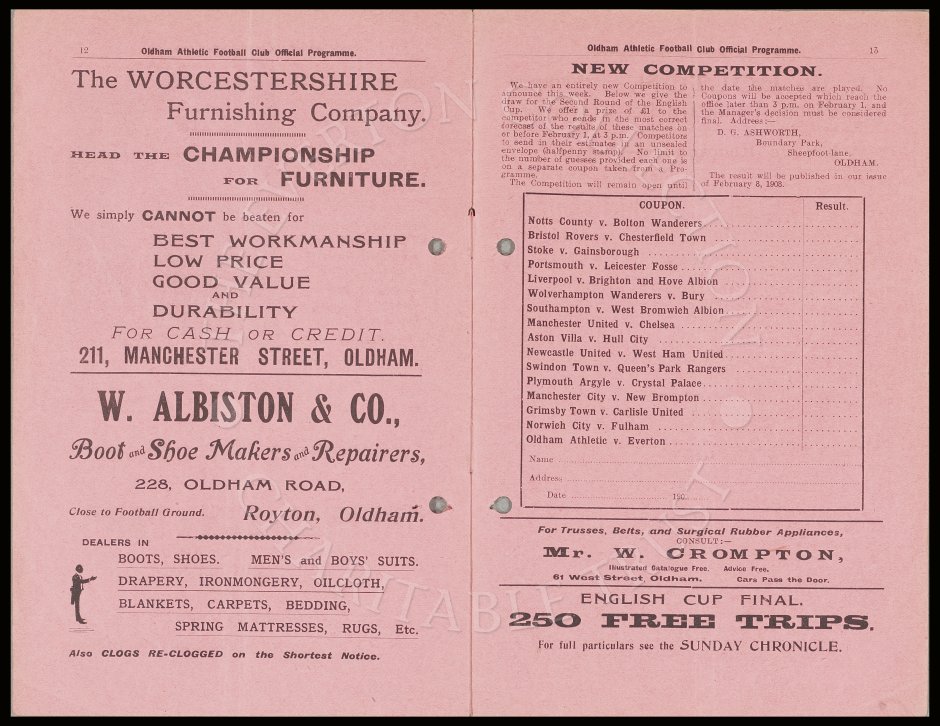 12
Oldham Athletic Football Club Official Programme.
The WORCESTERSHIRE
Furnishing Company.
HEAD THE CHAMPIONSHIP
FOR FURNITURE.
We simply CANNOT be beaten for
BEST WORKMANSHIP
LOW PRICE
GOOD VALUE
AND
DURABILITY
FOR CASH OR CREDIT.
211, MANCHESTER STREET, OLDHAM.
W. ALBISTON & CO.,
Boot and Shoe Makers and Repairers,
228, OLDHAM ROAD,
Close to Football Ground. Royton, Oldham.
DEALERS IN
BOOTS, SHOES. MEN'S and BOYS' SUITS.
DRAPERY, IRONMONGERY, OILCLOTH,
BLANKETS, CARPETS, BEDDING,
SPRING MATTRESSES, RUGS, Etc.
Also CLOGS RE-CLOGGED on the Shortest Notice.
Oldham Athletic Football Club Official Programme.
13
NEW COMPETITION.
We have an entirely new Competition to
announce this week. Below we give the
draw for the Second Round of the English
Cup. We offer a prize of £1 to the
competitor who sends in the most correct
forecast of the results of these matches on
or before February 1, at 3 p.m. Competitors
to send in their estimates in an unsealed
envelope (halfpenny stamp). No limit to
the number of guesses provided each one is
on a separate coupon taken from a Pro-
gramme.
The Competition will remain open until
the date the matches are played. No
Coupons will be accepted which reach the
office later than 3 p.m. on February 1, and
the Manager's decision must be considered
final. Address:—
D. G. ASHWORTH,
Boundary Park,
Sheepfoot-lane,
OLDHAM.
The result will be published in our issue
of February 8, 1908.
COUPON. Result.
Notts County v. Bolton Wanderers
Bristol Rovers v. Chesterfield Town
Stoke v. Gainsborough
Portsmouth v. Leicester Fosse
Liverpool v. Brighton and Hove Albion
Wolverhampton Wanderers v. Bury
Southampton v. West Bromwich Albion
Manchester United v. Chelsea
Aston Villa v. Hull City
Newcastle United v. West Ham United
Swindon Town v. Queen's Park Rangers
Plymouth Argyle v. Crystal Palace
Manchester City v. New Brompton
Grimsby Town v. Carlisle United
Norwich City v. Fulham
Oldham Athletic v. Everton
Name
Address
Date 190
For Trusses, Belts, and Surgical Rubber Appliances,
CONSULT:—
Mr. W. CROMPTON,
Illustrated Catalogue Free. Advice Free.
61 West Street, Oldham. Cars Pass the Door.
ENGLISH CUP FINAL.
250 FREE TRIPS.
For full particulars see the SUNDAY CHRONICLE.